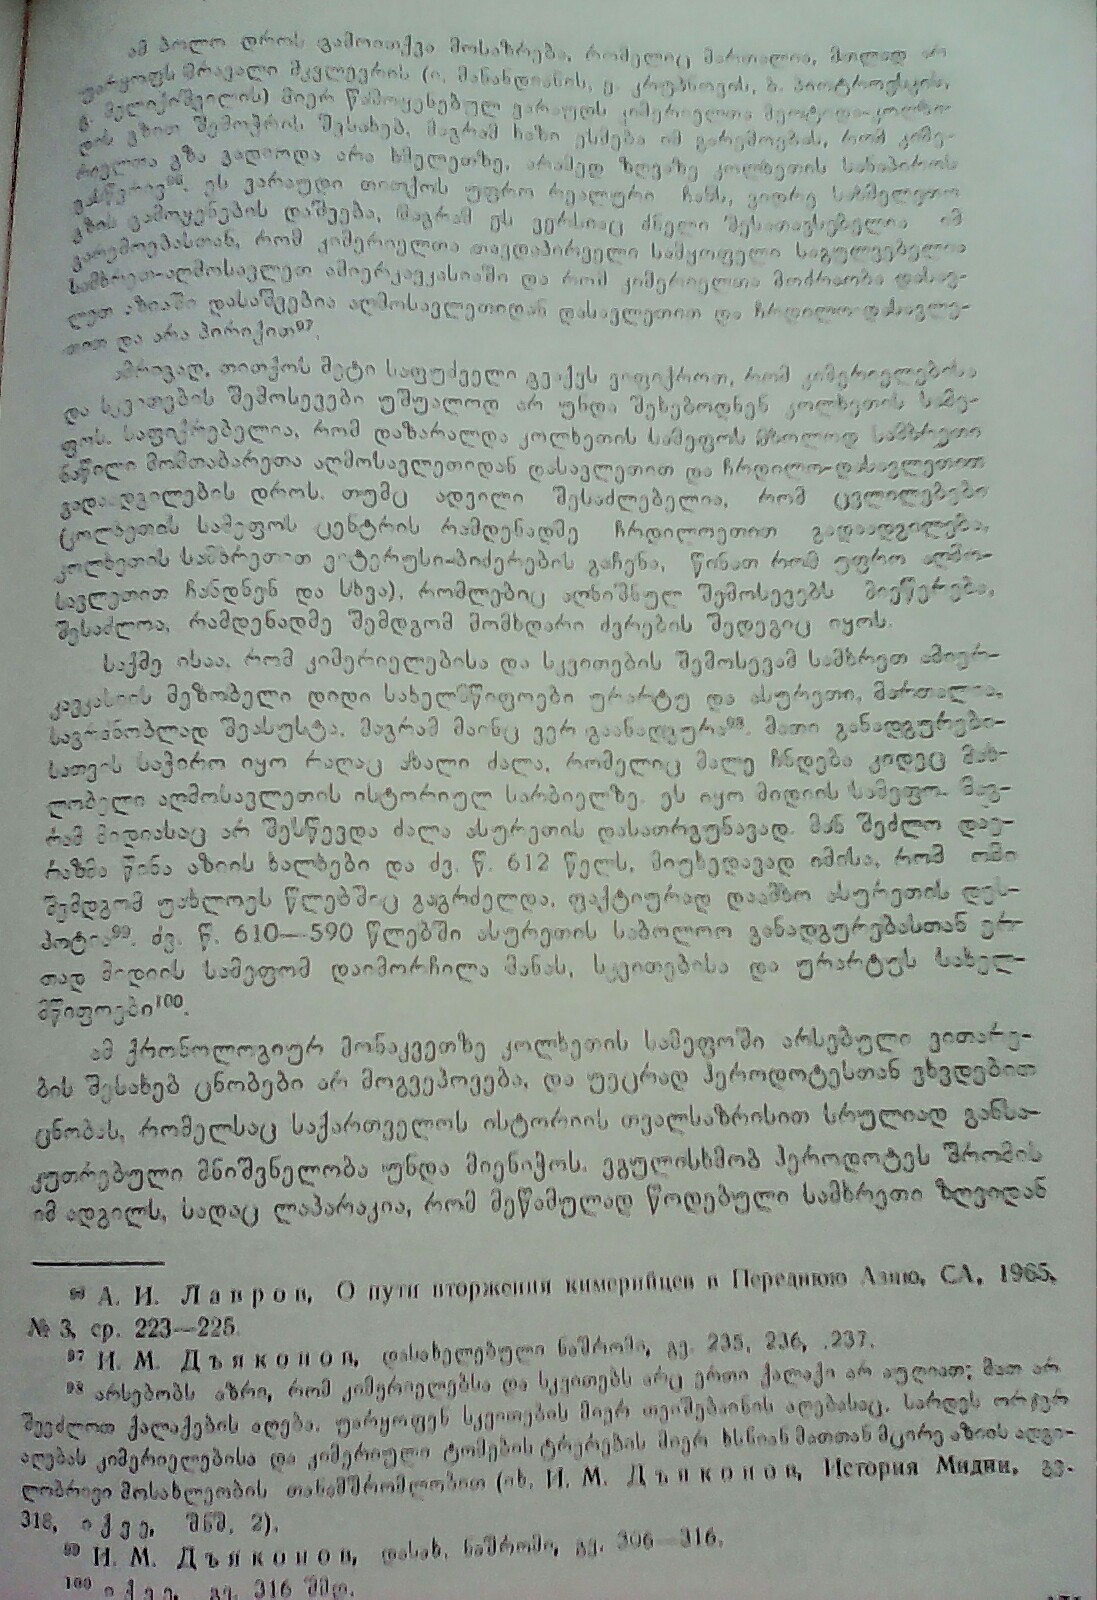 ამ ბოლო დროს გამოითქვა მოსაზრება, რომელიც მართალია, მთლად არ
უარყოფს მრავალი მკვლევრის (ი. მანანდიანის, ე. კრუპნოვის, ბ. პიოტროვსკის,
გ. მელიქიშვილის) მიერ წამოყენებულ ვარაუდს კიმერიელთა
გზით შემოჭრის შესახებ, მაგრამ ხაზი ესმება იმ გარემოებას, რომ კიმე-
რიელთა გზა გადიოდა არა ხმელეთზე, არამედ ზღვაზე კოლხეთის სანაპიროს
გასწვრივ⁹⁶. ეს ვარაუდი თითქოს უფრო რეალური ჩანს, ვიდრე სახმელეთო
გზის გამოყენების დაშვება, მაგრამ ეს ვერსიაც ძნელი შესათავსებელია იმ
გარემოებასთან, რომ კიმერიელთა თავდაპირველი სამყოფელი საგულვებელია
სამხრეთ-აღმოსავლეთ ამიერკავკასიაში და რომ კიმერიელთა მოძრაობა დასავ-
ლეთ აზიაში დასაშვებია აღმოსავლეთიდან დასავლეთით და ჩრდილო-დასავლე-
თით და არა პირიქით⁹⁷.
ამრიგად, თითქოს მეტი საფუძველი გვაქვს ვიფიქროთ, რომ კიმერიელებისა
და სკვითების შემოსევები უშუალოდ არ უნდა შეხებოდნენ კოლხეთის სამე-
ფოს. საფიქრებელია, რომ დაზარალდა კოლხეთის სამეფოს მხოლოდ სამხრეთი
ნაწილი მომთაბარეთა აღმოსავლეთიდან დასავლეთით და ჩრდილო-დასავლეთით
გადაადგილების დროს. თუმც ადვილი შესაძლებელია, რომ ცვლილებები
(კოლხეთის სამეფოს ცენტრის რამდენადმე ჩრდილოეთით გადაადგილება,
კოლხეთის სამხრეთით ეკრიტიკე-ბიძერების გაჩენა, წინათ რომ უფრო აღმო-
სავლეთით ჩანდნენ და სხვა), რომლებიც აღნიშნულ შემოსევებს მიეწერება,
შესაძლოა, რამდენადმე შემდგომ მომხდარი ძვრების შედეგიც იყოს.
საქმე ისაა, რომ კიმერიელებისა და სკვითების შემოსევამ სამხრეთ ამიერ-
კავკასიის მეზობელი დიდი სახელმწიფოები ურარტუ და ასურეთი, მართალია,
საგრძნობლად შეასუსტა, მაგრამ მაინც ვერ გაანადგურა⁹⁸. მათი განადგურები-
სათვის საჭირო იყო რაღაც ახალი ძალა, რომელიც მალე ჩნდება კიდეც მახ-
ლობელი აღმოსავლეთის ისტორიულ სარბიელზე. ეს იყო მიდიის სამეფო. მაგ-
რამ მიდიასაც არ შესწევდა ძალა ასურეთის დასათრგუნავად. მან შეძლო დაე-
რაზმა წინა აზიის ხალხები და ძვ. წ. 612 წელს, მიუხედავად იმისა, რომ ომი
შემდგომ უახლოეს წლებშიც გაგრძელდა, ფაქტიურად დაამხო ასურეთის დეს-
პოტია⁹⁹. ძვ. წ. 610—590 წლებში ასურეთის საბოლოო განადგურებასთან ერ-
თად მიდიის სამეფომ დაიმორჩილა მანას, სკვითებისა და ურარტუს სახელ-
მწიფოები¹⁰⁰.
ამ ქრონოლოგიურ მონაკვეთზე კოლხეთის სამეფოში არსებული ვითარე-
ბის შესახებ ცნობები არ მოგვეპოვება, და უეცრად ჰეროდოტესთან ვხვდებით
ცნობას, რომელსაც საქართველოს ისტორიის თვალსაზრისით სრულიად განსა-
კუთრებული მნიშვნელობა უნდა მიენიჭოს. ვგულისხმობ ჰეროდოტეს შრომის
იმ ადგილს, სადაც ლაპარაკია, რომ მეწამულად წოდებული სამხრეთი ზღვიდან
⁹⁶ А. И. Лавров, О пути вторжения кимерийцев в Переднюю Азию, СА, 1965,
№ 3, ср. 223—225.
⁹⁷ И. М. Дъяконов, დასახელებული ნაშრომი, გვ. 235, 236, 237.
⁹⁸ არსებობს აზრი, რომ კიმერიელებსა და სკვითებს არც ერთი ქალაქი არ აუღიათ; მათ არ
შეეძლოთ ქალაქების აღება. უარყოფენ სკვითების მიერ თეიშებაინის აღებასაც. სარდეს ორჯერ
აღებას კიმერიელებისა და კიმერიული ტომების ტრერების მიერ ხსნიან მათთან მცირე აზიის ადგი-
ლობრივი მოსახლეობის თანამშრომლობით (იხ. И. М. Дъяконов, История Мидии, გვ.
318, იქვე, შნშ. 2).
⁹⁹ И. М. Дъяконов, დასახ. ნაშრომი, გვ. 306—316.
¹⁰⁰ იქვე, გვ. 316 შმდ.